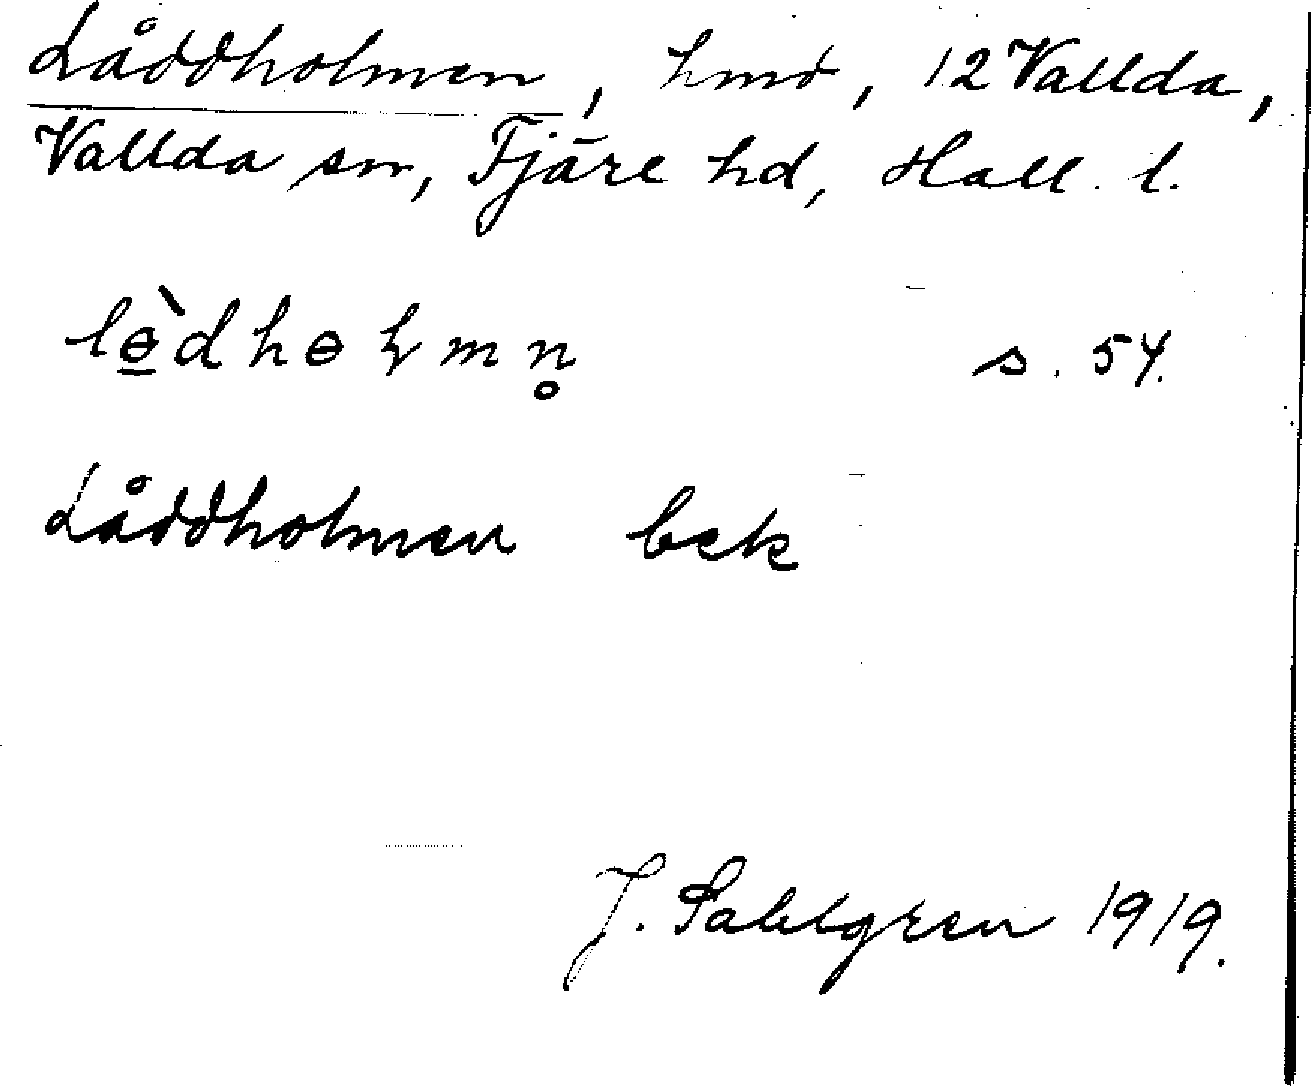 Låddholmen, hmd, 12 Vallda,
Vallda sn, Fjäre hd, Hall. l.
s. 54.
Låddholmen bek
J. Sahlgren 1919.